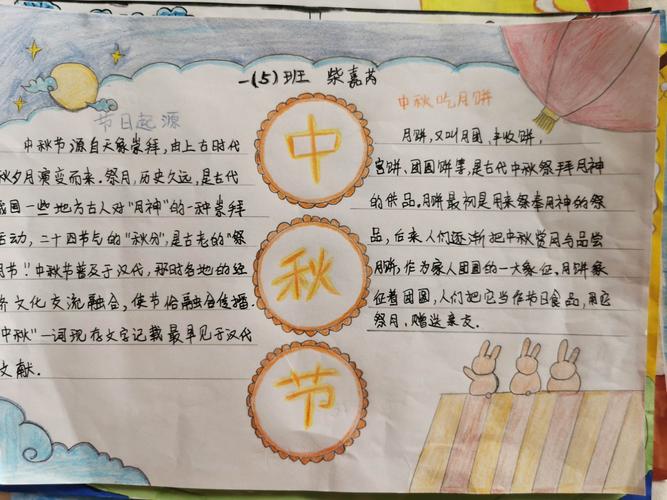 一(5)班 柴嘉芮
节日起源
中秋节源自天象崇拜，由上古时代
秋夕月演变而来。祭月，历史久远，是古代
我国一些地方古人对"月神"的一种崇拜
活动，二十四节气的"秋分"，是古老的"祭
月节"！中秋节普及于汉代，那时各地的经
济文化交流融合，使节俗融合传播
"中秋"一词现存文字记载最早见于汉代
文献.
中
秋
节
中秋吃月饼
月饼，又叫月团、丰收饼，
宫饼、团圆饼等，是古代中秋祭拜月神
的供品。月饼最初是用来祭奉月神的祭
品，后来人们逐渐把中秋赏月与品尝
月饼，作为家人团圆的一大象征，月饼象
征着团圆，人们把它当作节日食品，用它
祭月、赠送亲友.